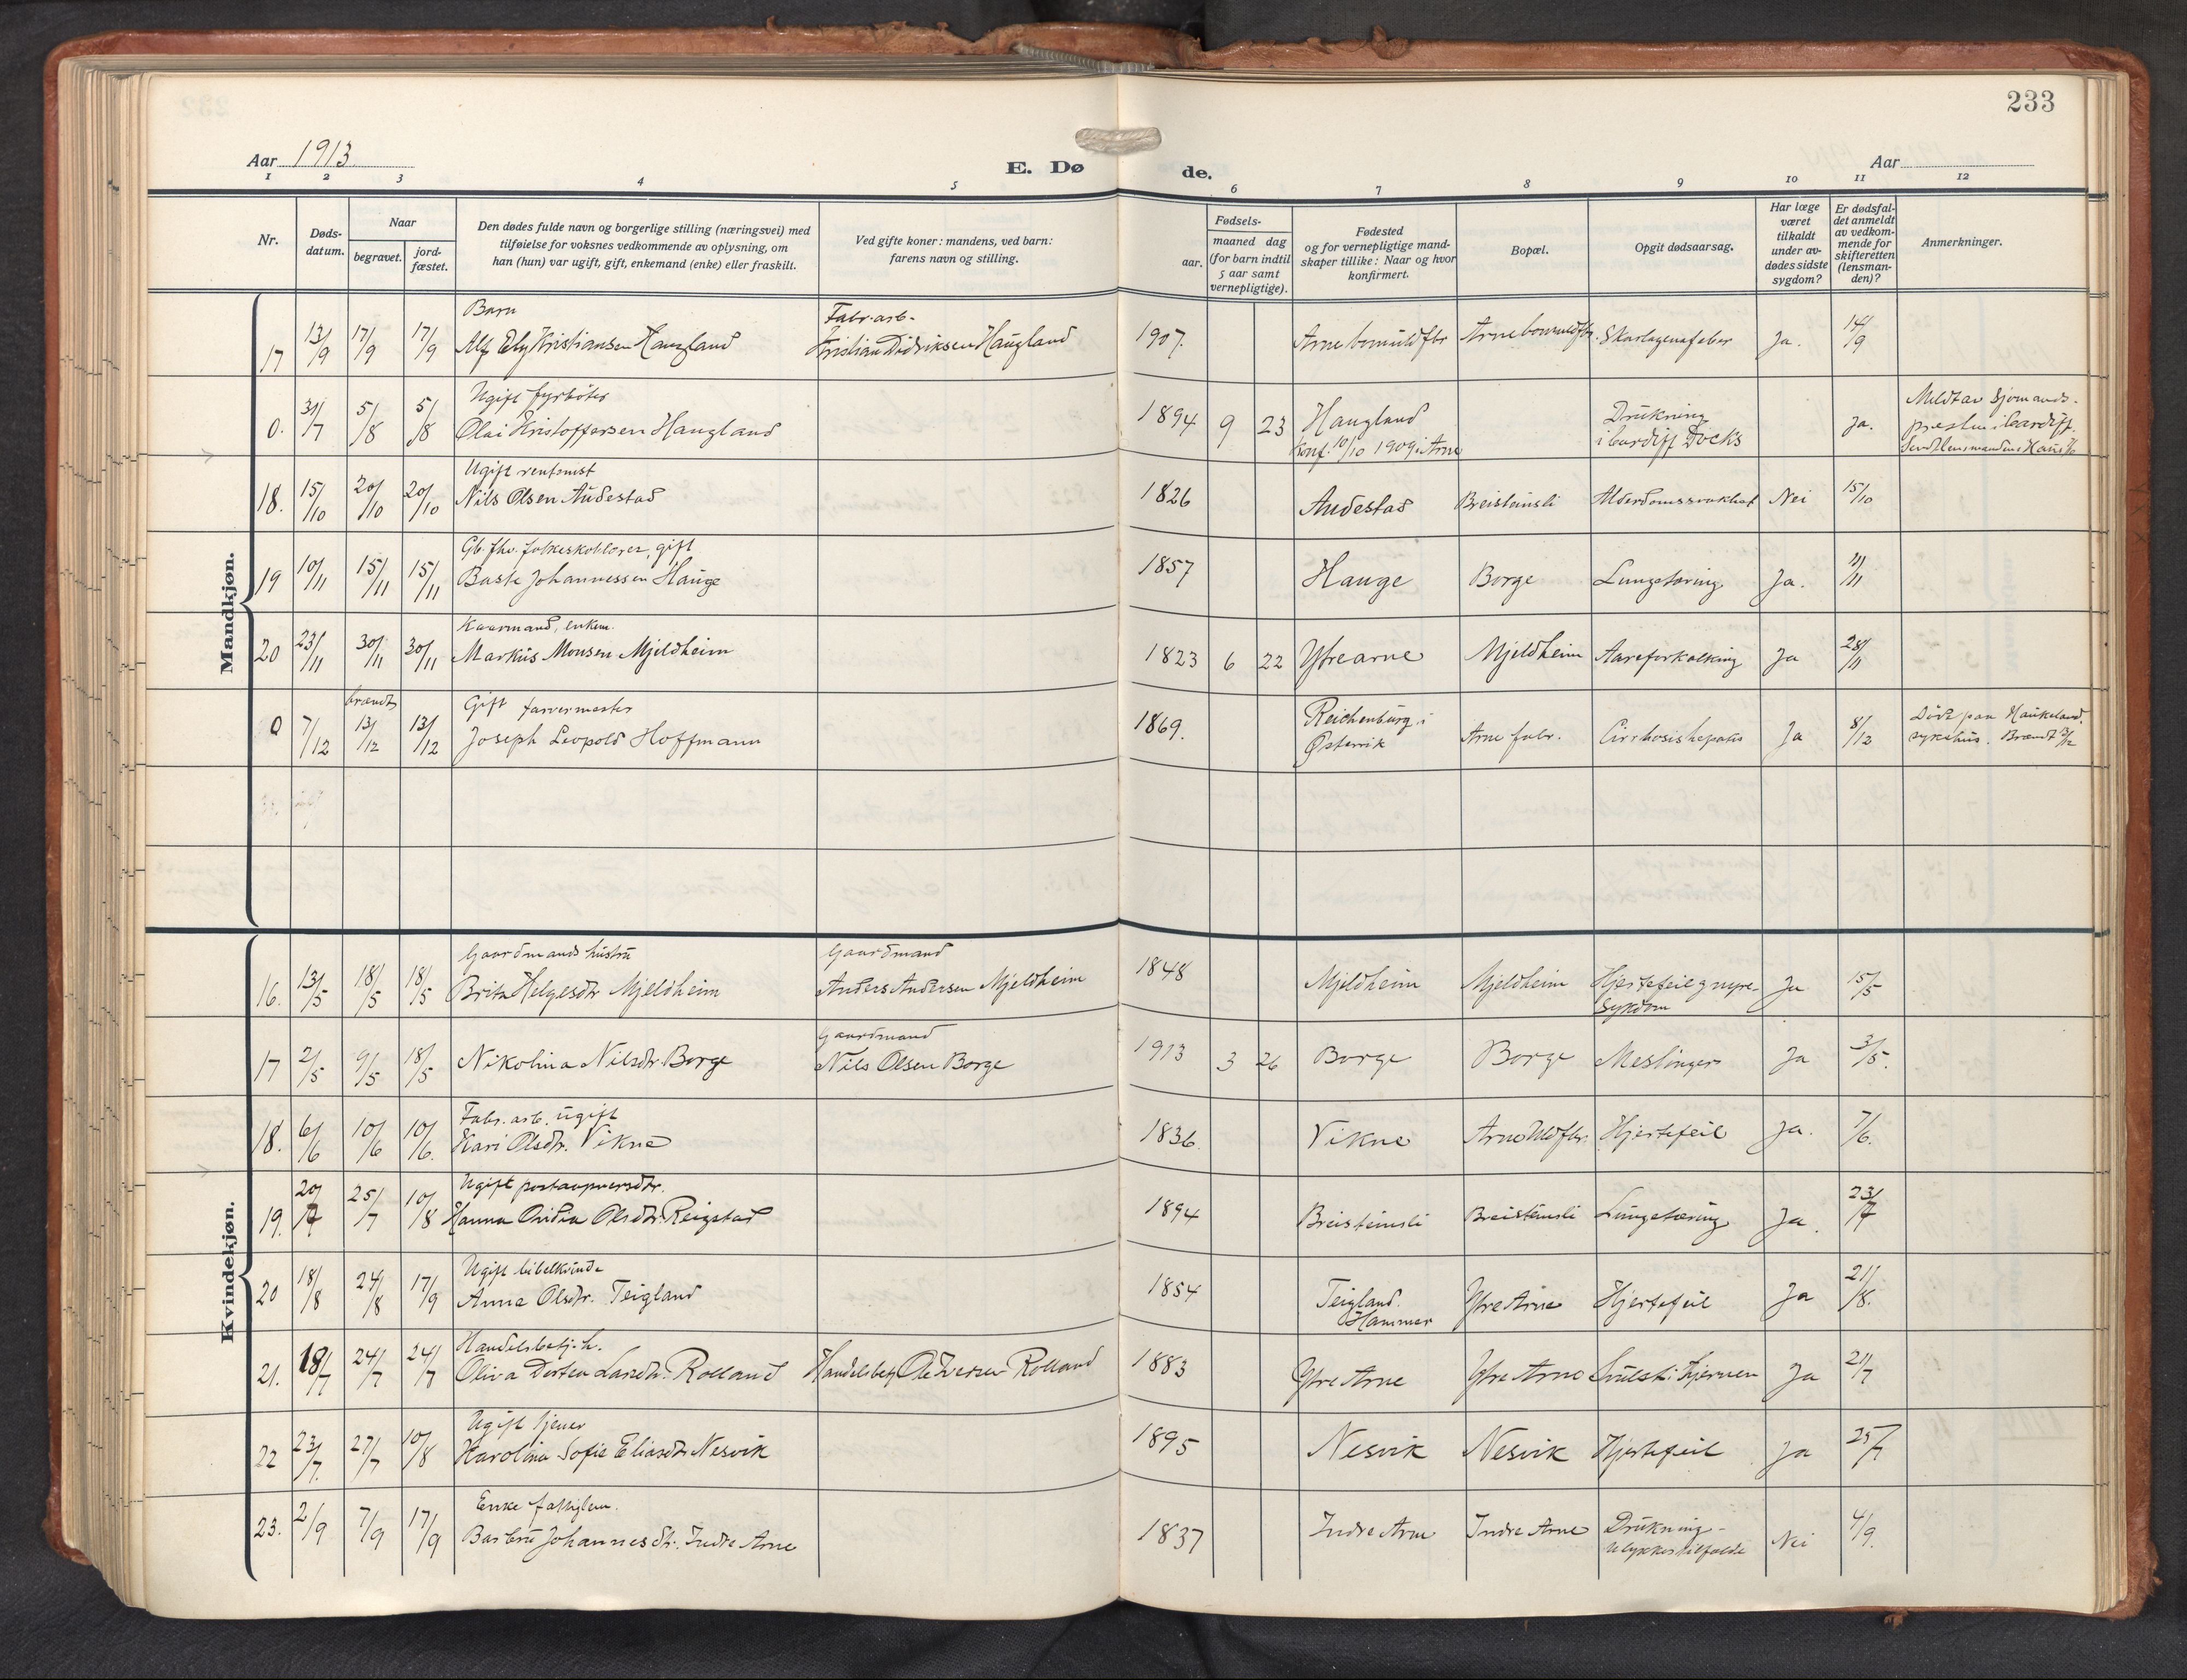 233
Aar 1913
E. Dø de.
Aar
1 2 3 4 5 6 7 8 9 10 11 12
Nr.
Døds-
datum.
Naar
begravet.
jord-
fæstet.
Den dødes fulde navn og borgerlige stilling (næringsvei) med
tilføielse for voksnes vedkommende av oplysning, om
han (hun) var ugift, gift, enkemand (enke) eller fraskilt.
Ved gifte koner: mandens, ved barn:
farens navn og stilling.
Fødsels-
aar.
maaned dag
(for barn indtil
5 aar samt
vernepligtige).
Fødested
og for vernepligtige mand-
skaper tillike: Naar og hvor
konfirmert.
Bopæl.
Opgit dødsaarsag.
Har læge
været
tilkaldt
under av-
dødes sidste
sygdom?
Er dødsfal-
det anmeldt
av vedkom-
mende for
skifteretten
(lensman-
den)?
Anmerkninger.
Mandkjøn.
Barn Fabr.arb.
17 13/9 17/9 17/9 Alf Kristiansen Haugland Kristian Didriksen Haugland 1907. Arne bomuldfbr Arne bomuldfbr. Skarlagensfeber Ja. 14/9
Ugift fyrbøter
0. 31/7 5/8 5/8 Olai Kristoffersen Haugland 1894 9 23 Haugland Drukning i Cardiff Docks Ja. Meldt av Sjømands-
Konf. 10/10 1909 i Arne presten i Cardiff.
Ugift rentenist
18. 15/10 20/10 20/10 Nils Olsen Audestad 1826 Audestad Breisteinsli Alderdomssvakhet Nei 15/10
Gb. fhv. folkeskolelærer, gift
19 10/11 15/11 15/11 Johannessen Hauge 1857 Hauge Borge Lungetæring Ja. 11/11
Kaarmand, enkem.
20 23/11 30/11 30/11 Markus Monsen Mjeldheim 1823 6 22 Ytrearne Mjeldheim Aareforkalkning Ja 28/11
brændt Gift farvermester
0 7/12 13/12 13/12 Joseph Leopold Hoffmann 1869. Reichenburg i Østerrik Arne fabr. Cirrhosis hepatis Ja 8/12 Døde paa Haukeland.
sykehus. Brændt 13/12
Kvindekjøn.
Gaardmands hustru Gaardmand
16. 13/5 18/5 18/5 Brita Helgesdtr Mjeldheim Anders Andersen Mjeldheim 1848 Mjeldheim Mjeldheim Hjertefeil g nyre- Ja 15/5
sykdom
Gaardmand
17 2/5 9/5 18/5 Nikolina Nilsdtr. Borge Nils Olsen Borge 1913 3 26 Borge Borge Meslinger Ja 3/5.
Fabr. arb. ugift
18. 6/6 10/6 10/6. Kari Olsdtr. Vikne 1836 Vikne Arne Uldfbr. Hjertefeil Ja. 7/6.
Ugift postaapnersdtr.
19. 20/7 25/7 10/8 Hanna Olsdtr. Reigstad 1894 Breisteinsli Breisteinsli Lungetæring Ja. 23/7
Ugift bibelkvinde
20 18/8 24/8 17/9 Anna Olsdtr. Teigland 1854 Teigland. Ytre Arne Hjertefeil Ja 21/8.
Hammer
Handelsbetj. h.
21. 18/7 24/7 24/7 Oliva Dortea Larsdtr. Rolland Handelsbetj Ole Iversen Rolland 1883 Ytre Arne Ytre Arne Svulst i Hjernen Ja 21/7
Ugift tjener
22 23/7. 27/7 10/8 Karolina Sofie Eliasdtr Nesvik 1895 Nesvik Nesvik Hjertefeil Ja 25/7
Enke fattiglem.
23. 2/9 7/9 17/9 Barbru Johannesdtr. Indre Arne 1837 Indre Arne Indre Arne Drukning- Nei 4/9.
ulykkestilfælde